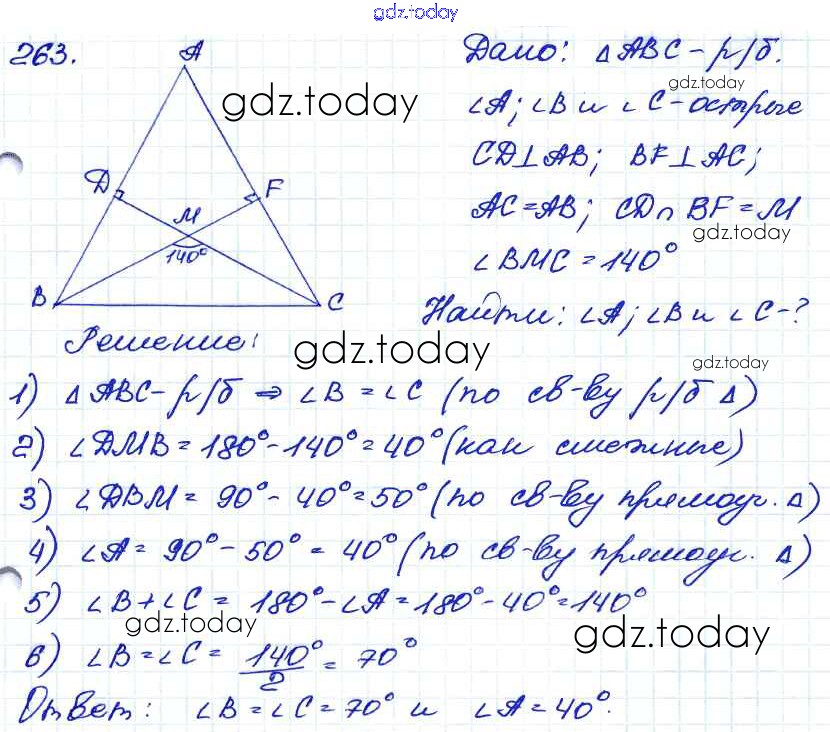 gdz.today
263.
A
D
F
M
140°
B
C
gdz.today
Дано: △ABC - р/б.
gdz.today
∠A; ∠B и ∠C - острые
CD⊥AB; BF⊥AC;
AC=AB; CD∩BF=M
gdz.today
∠BMC=140°
Найти: ∠A; ∠B и ∠C-?
Решение:
gdz.today
gdz.today
1) △ABC - р/б ⇒ ∠B=∠C (по св-ву р/б △)
2) ∠DMB=180°-140°=40° (как смежные)
3) ∠DBM=90°-40°=50° (по св-ву прямоуг. △)
4) ∠A=90°-50°=40° (по св-ву прямоуг. △)
5) ∠B+∠C=180°-∠A=180°-40°=140°
gdz.today
gdz.today
6) ∠B=∠C=140°/2=70°
Ответ: ∠B=∠C=70° и ∠A=40°.